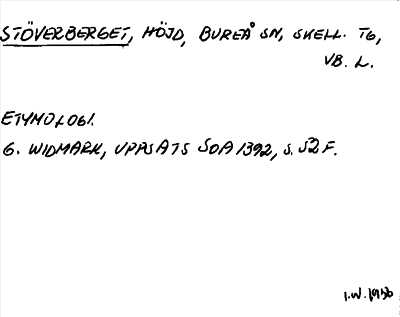 STÖVERBERGET, HÖJD, BUREÅ SN, SKELL. TG,
VB. L.
ETYMOLOGI.
G. WIDMARK, UPPSATS SOA 1392, S. 52 F.
I.W. 1956